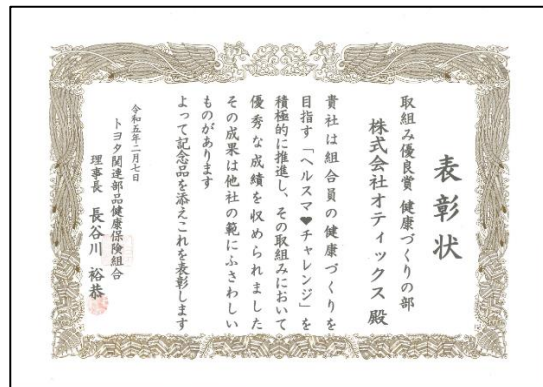 表彰状
取組み優良賞 健康づくりの部
株式会社オティックス殿
貴社は組合員の健康づくりを
目指す「ヘルスマ♥チャレンジ」を
積極的に推進し、その取組みにおいて
優秀な成績を収められました
その成果は他社の範にふさわしい
ものがあります
よって記念品を添えこれを表彰します
令和五年二月七日
トヨタ関連部品健康保険組合
理事長 長谷川 裕恭